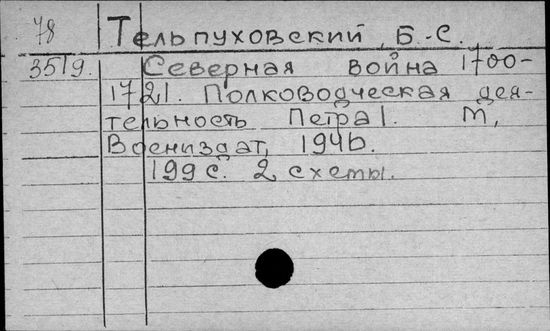 78 Тельпуховский, Б.-С.
3519. Северная война 1700-
1721. Полководческая дея-
тельность Петра I. М,
Воениздат, 1946.
199 с. 2 схемы.